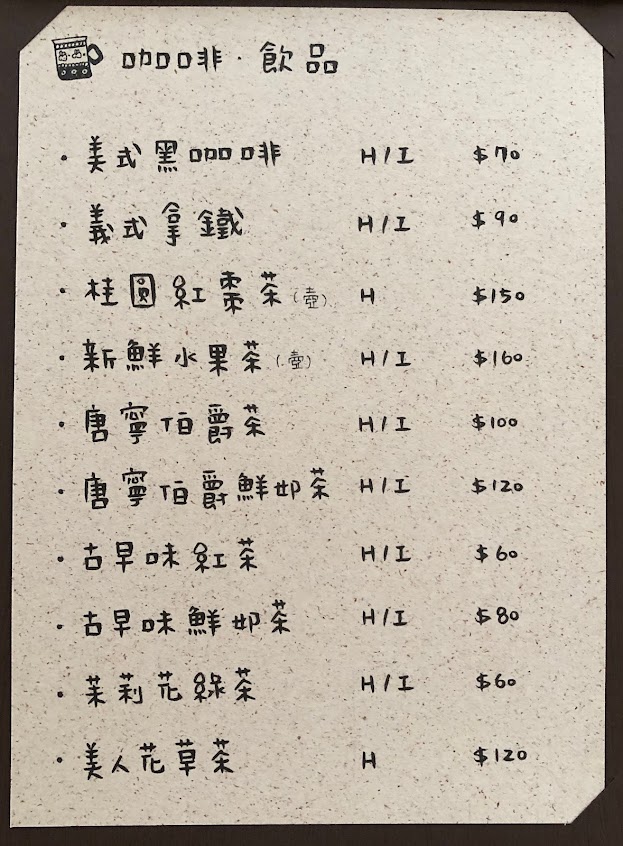 咖啡・飲品
・美式黑咖啡 H/I $70
・義式拿鐵 H/I $90
・桂圓紅棗茶(壺) H $150
・新鮮水果茶(壺) H/I $160
・唐寧伯爵茶 H/I $100
・唐寧伯爵鮮奶茶 H/I $120
・古早味紅茶 H/I $60
・古早味鮮奶茶 H/I $80
・茉莉花綠茶 H/I $60
・美人花草茶 H $120